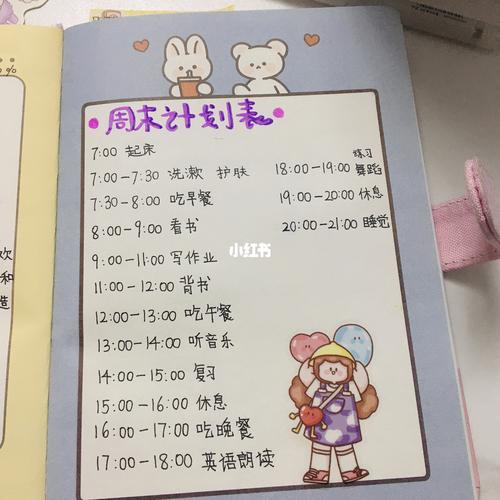 周末计划表
7:00 起床
7:00-7:30 洗漱 护肤
7:30-8:00 吃早餐
8:00-9:00 看书
9:00-11:00 写作业
11:00-12:00 背书
12:00-13:00 吃午餐
13:00-14:00 听音乐
14:00-15:00 复习
15:00-16:00 休息
16:00-17:00 吃晚餐
17:00-18:00 英语朗读
练习
18:00-19:00 舞蹈
19:00-20:00 休息
20:00-21:00 睡觉
小红书
欢
和
造